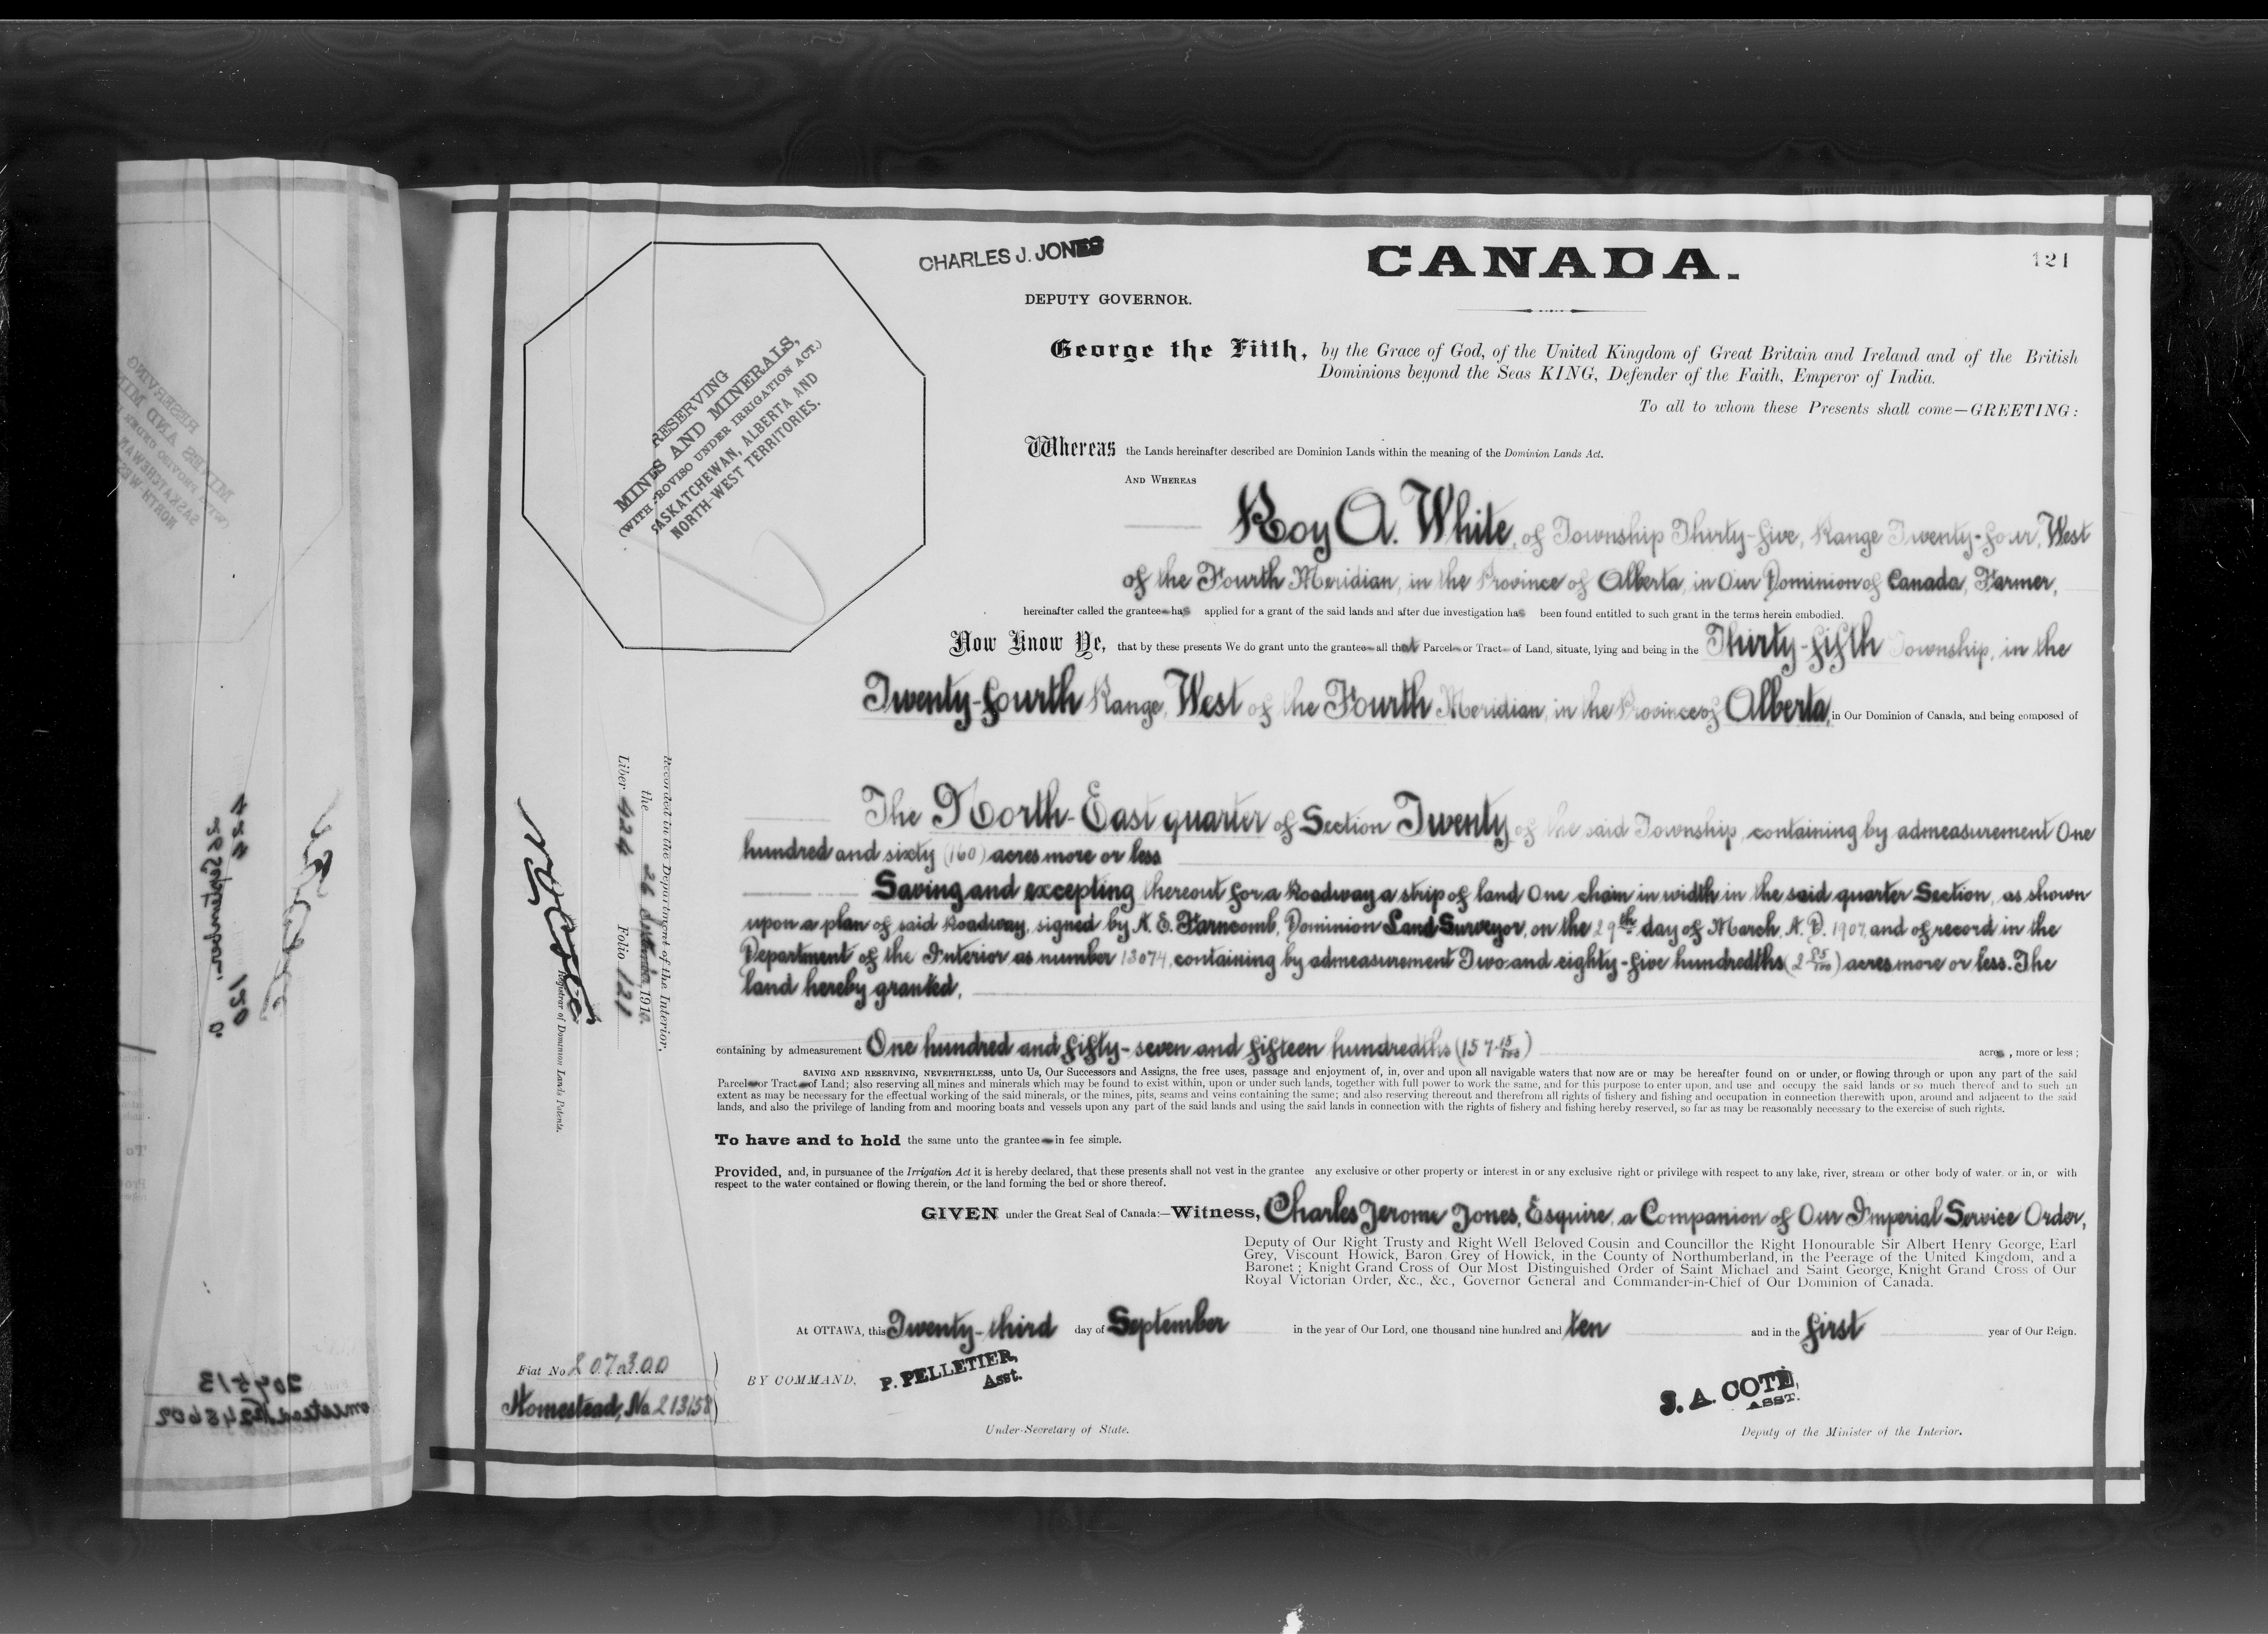 CHARLES J. JONES
CANADA.
121
DEPUTY GOVERNOR.
RESERVING
MINES AND MINERALS,
(WITH PROVISO UNDER IRRIGATION ACT.)
SASKATCHEWAN, ALBERTA AND
NORTH-WEST TERRITORIES.
George the Fifth, by the Grace of God, of the United Kingdom of Great Britain and Ireland and of the British
Dominions beyond the Seas KING, Defender of the Faith, Emperor of India.
To all to whom these Presents shall come—GREETING:
Whereas the Lands hereinafter described are Dominion Lands within the meaning of the Dominion Lands Act.
AND WHEREAS
Roy A. White, of Township Thirty-five, Range Twenty-four, West
of the Fourth Meridian, in the Province of Alberta, in Our Dominion of Canada, Farmer,
hereinafter called the grantee has applied for a grant of the said lands and after due investigation has been found entitled to such grant in the terms herein embodied.
Now Know Ye, that by these presents We do grant unto the grantee all that Parcel or Tract of Land, situate, lying and being in the Thirty-fifth Township, in the
Twenty-fourth Range, West of the Fourth Meridian, in the Province of Alberta, in Our Dominion of Canada, and being composed of
The North-East quarter of Section Twenty of the said Township, containing by admeasurement One
hundred and sixty (160) acres more or less
Saving and excepting thereout for a Roadway a strip of land One chain in width in the said quarter Section, as shown
upon a plan of said Roadway, signed by A. E. Farncomb, Dominion Land Surveyor, on the 29th day of March, A. D. 1907, and of record in the
Department of the Interior as number 13074, containing by admeasurement Two and eighty-five hundredths (2 85/100) acres more or less. The
land hereby granted,
containing by admeasurement One hundred and fifty-seven and fifteen hundredths (157 15/100) acres, more or less;
SAVING AND RESERVING, NEVERTHELESS, unto Us, Our Successors and Assigns, the free uses, passage and enjoyment of, in, over and upon all navigable waters that now are or may be hereafter found on or under, or flowing through or upon any part of the said
Parcel or Tract of Land; also reserving all mines and minerals which may be found to exist within, upon or under such lands, together with full power to work the same, and for this purpose to enter upon, and use and occupy the said lands or so much thereof and to such an
extent as may be necessary for the effectual working of the said minerals, or the mines, pits, seams and veins containing the same; and also reserving thereout and therefrom all rights of fishery and fishing and occupation in connection therewith upon, around and adjacent to the said
lands, and also the privilege of landing from and mooring boats and vessels upon any part of the said lands and using the said lands in connection with the rights of fishery and fishing hereby reserved, so far as may be reasonably necessary to the exercise of such rights.
To have and to hold the same unto the grantee in fee simple.
Provided, and, in pursuance of the Irrigation Act it is hereby declared, that these presents shall not vest in the grantee any exclusive or other property or interest in or any exclusive right or privilege with respect to any lake, river, stream or other body of water, or in, or with
respect to the water contained or flowing therein, or the land forming the bed or shore thereof.
GIVEN under the Great Seal of Canada:—Witness, Charles Jerome Jones, Esquire, a Companion of Our Imperial Service Order,
Deputy of Our Right Trusty and Right Well Beloved Cousin and Councillor the Right Honourable Sir Albert Henry George, Earl
Grey, Viscount Howick, Baron Grey of Howick, in the County of Northumberland, in the Peerage of the United Kingdom, and a
Baronet; Knight Grand Cross of Our Most Distinguished Order of Saint Michael and Saint George, Knight Grand Cross of Our
Royal Victorian Order, &c., &c., Governor General and Commander-in-Chief of Our Dominion of Canada.
At OTTAWA, this Twenty-third day of September in the year of Our Lord, one thousand nine hundred and ten and in the first year of Our Reign.
BY COMMAND,
P. PELLETIER,
Asst.
Under-Secretary of State.
S. A. COTE,
ASST.
Deputy of the Minister of the Interior.
Fiat No 207300
Homestead, No 213158
Recorded in the Department of the Interior,
the 26 September, 1910.
Liber 424 Folio 121
Registrar of Dominion Lands Patents.